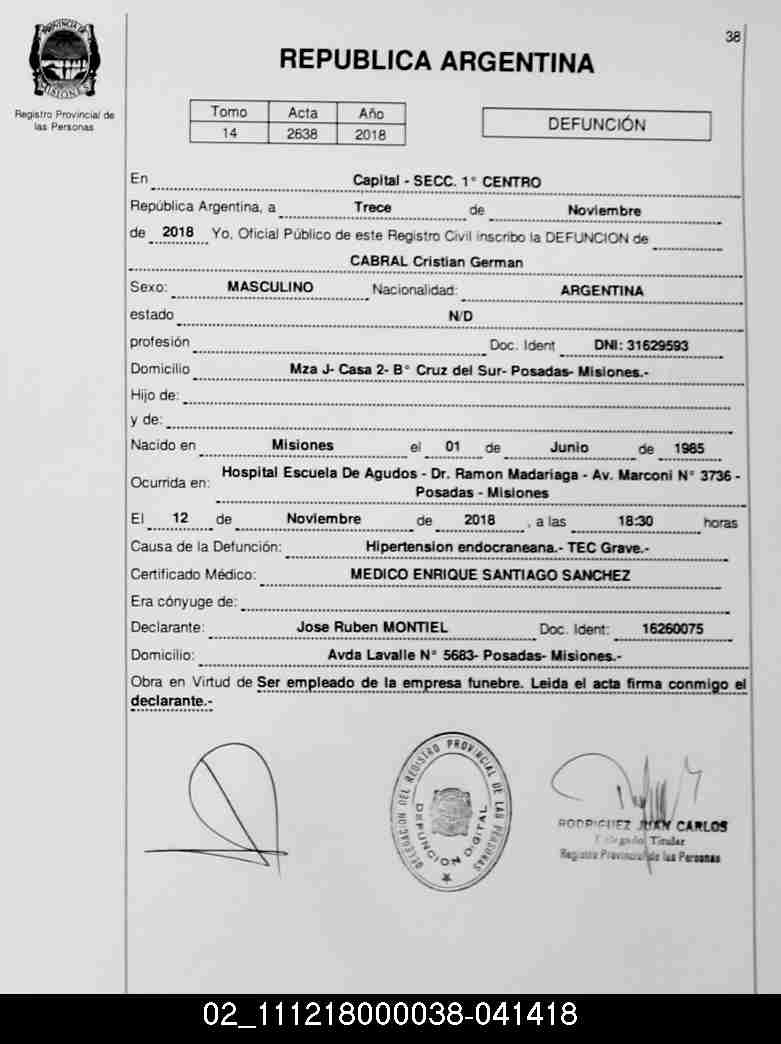 38
PROVINCIA DE
MISIONES
Registro Provincial de
las Personas
REPUBLICA ARGENTINA
Tomo Acta Año
14 2638 2018
DEFUNCIÓN
En Capital - SECC. 1° CENTRO
República Argentina, a Trece de Noviembre
de 2018 Yo, Oficial Público de este Registro Civil inscribo la DEFUNCION de
CABRAL Cristian German
Sexo: MASCULINO Nacionalidad: ARGENTINA
estado N/D
profesión Doc. Ident DNI: 31629593
Domicilio Mza J- Casa 2- B° Cruz del Sur- Posadas- Misiones.-
Hijo de:
y de:
Nacido en Misiones el 01 de Junio de 1985
Ocurrida en: Hospital Escuela De Agudos - Dr. Ramon Madariaga - Av. Marconi N° 3736 -
Posadas - Misiones
El 12 de Noviembre de 2018 , a las 18:30 horas
Causa de la Defunción: Hipertension endocraneana.- TEC Grave.-
Certificado Médico: MEDICO ENRIQUE SANTIAGO SANCHEZ
Era cónyuge de:
Declarante: Jose Ruben MONTIEL Doc. Ident: 16260075
Domicilio: Avda Lavalle N° 5683- Posadas- Misiones.-
Obra en Virtud de Ser empleado de la empresa funebre. Leida el acta firma conmigo el
declarante.-
DELEGACION DEL REGISTRO PROVINCIAL DE LAS PERSONAS
DEFUNCION DIGITAL
RODRIGUEZ JUAN CARLOS
Delegado Titular
Registro Provincial de las Personas
02_111218000038-041418